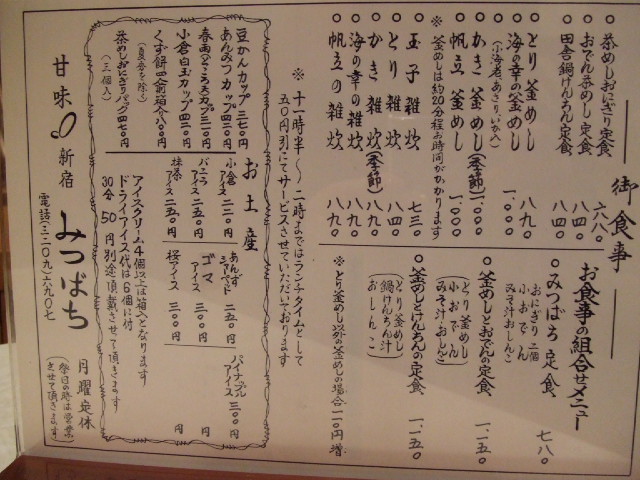 御食事
○茶めしおにぎり定食 六八〇
○おでん茶めし定食 八四〇
○田舎鍋けんちん定食 八四〇
○とり釜めし 八九〇
○海の幸の釜めし 一、〇〇〇
(小海老、あさり、いか入)
○かき釜めし(季節) 一、〇〇〇
○帆立釜めし 一、〇〇〇
※釜めしは約20分程お時間がかかります
○玉子雑炊 七三〇
○とり雑炊 八四〇
○かき雑炊(季節) 八九〇
○海の幸の雑炊 八九〇
○帆立の雑炊 八九〇
お食事の組合せメニュー
○みつばち定食 七八〇
おにぎり二個
小おでん
みそ汁おしんこ
○釜めしとおでんの定食 一、一五〇
(とり釜めし
小おでん
みそ汁おしんこ)
○釜めしとけんちんの定食 一、一五〇
(とり釜めし
鍋けんちん汁
おしんこ)
※とり釜めし以外の釜めしの場合一一〇円増
※十一時半〜二時まではランチタイムとして
五〇円引にてサービスさせていただいております
お土産
豆かんカップ 三七〇
あんみつカップ 四二〇
春雨(ところ天)カップ 三一〇
小倉白玉カップ 四二〇
くず餅二人前箱入 六〇〇
(夏季を除く)
茶めしおにぎりパック 四七〇
(三個入)
小倉アイス 二二〇
バニラアイス 二五〇
抹茶アイス 二五〇
あんずシャーベット 二五〇
ゴマアイス 三〇〇
桜アイス 三〇〇
パイナップルアイス 三〇〇円
円
円
アイスクリーム4個以上は箱入となります
ドライアイス代は6個に付
30分50円別途頂戴させて頂きます
甘味処 新宿 みつばち
電話(三二〇九)六九〇七
月曜定休
(祭日の時は営業
させて頂きます)